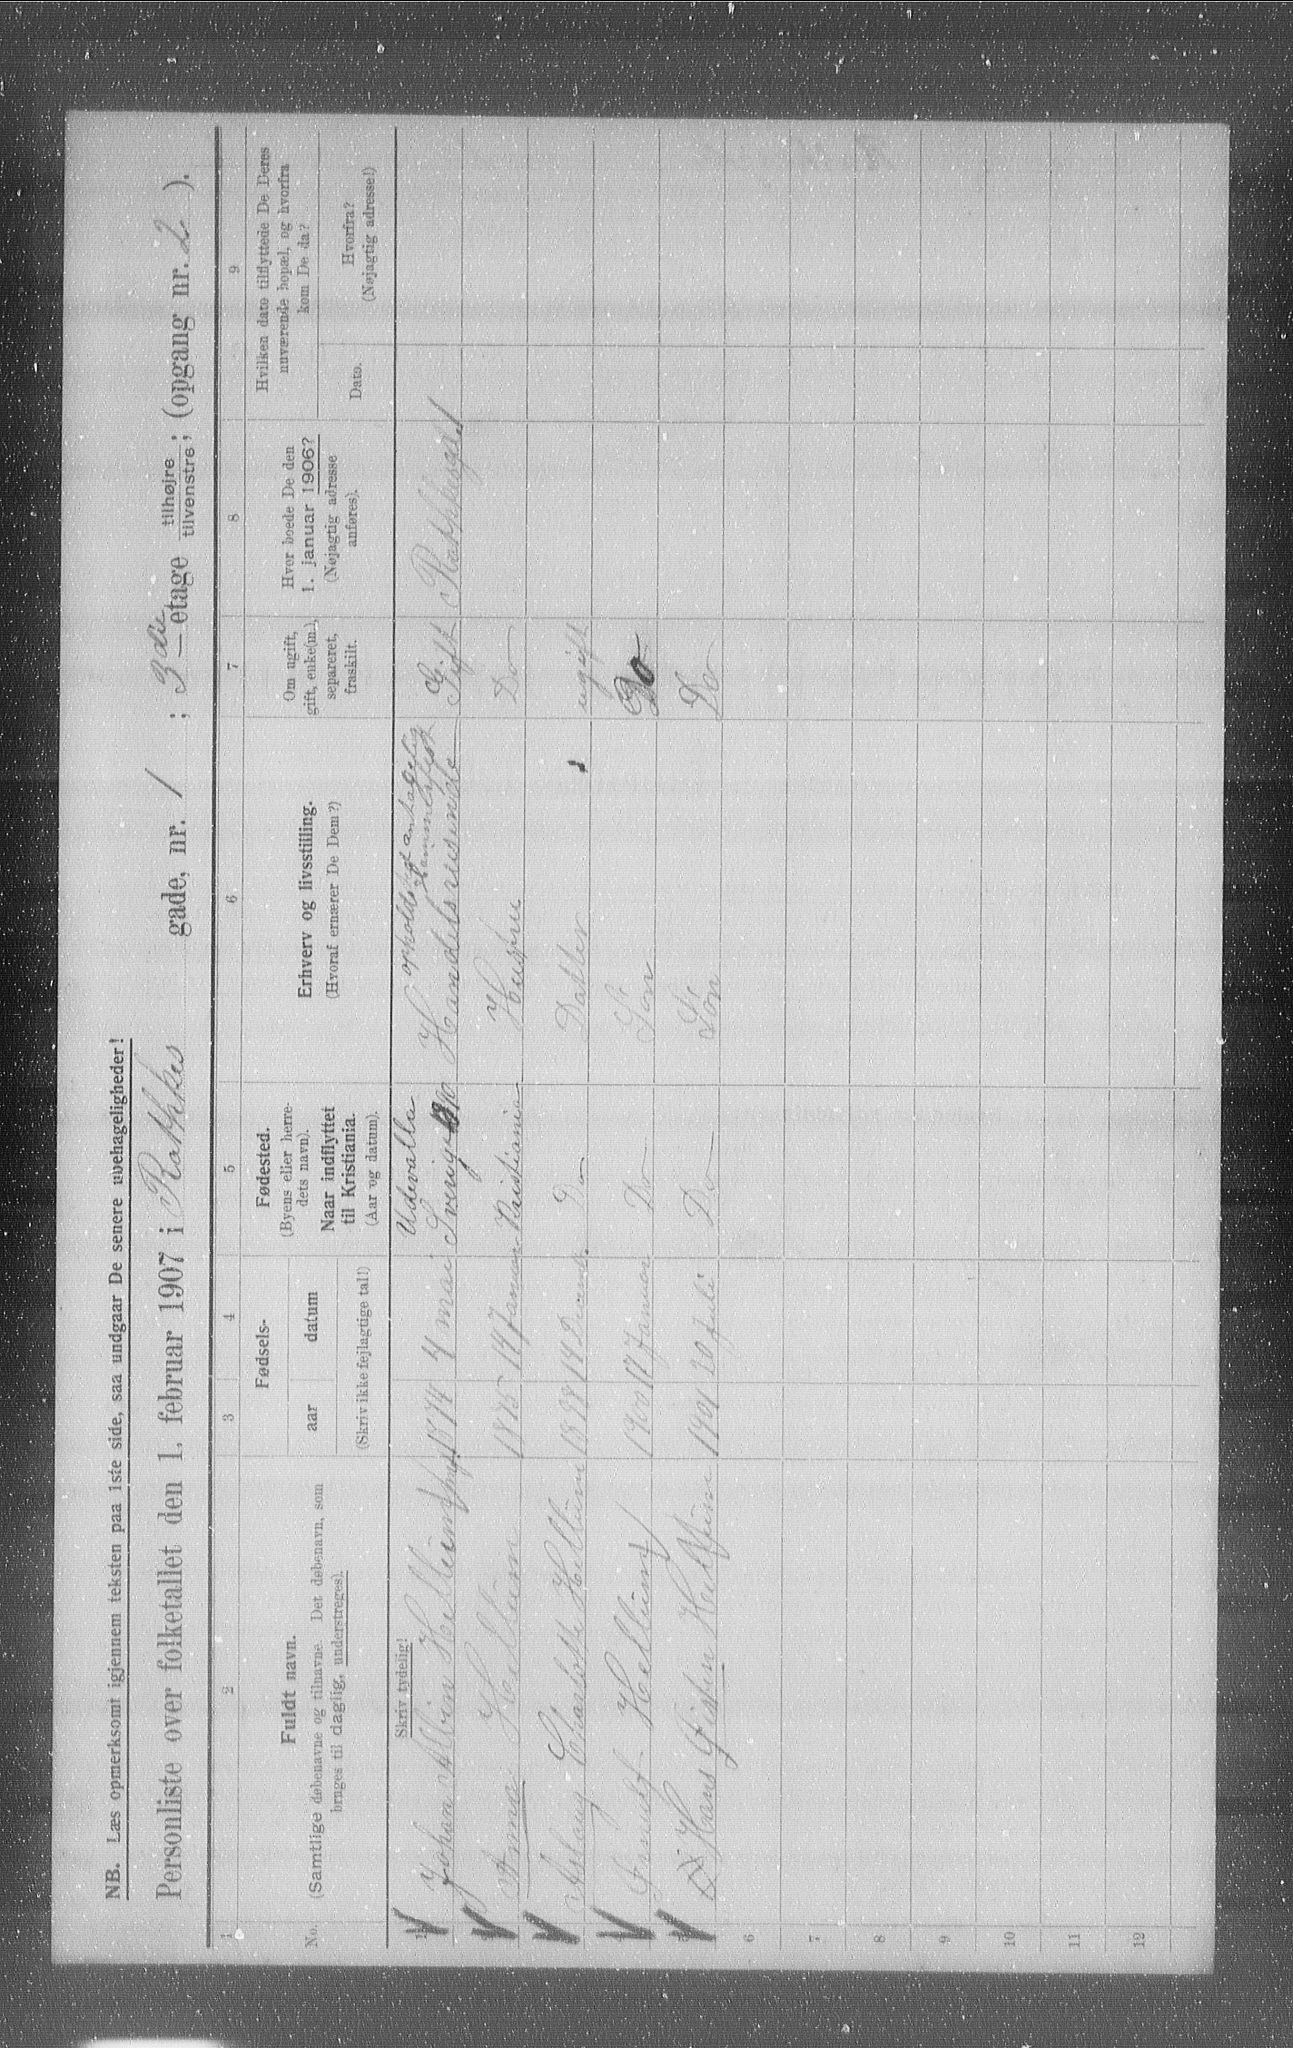 NB. Læs opmerksomt igjennem teksten paa 1ste side, saa undgaar De senere ubehageligheder!
Personliste over folketallet den 1. februar 1907 i Rathkes gade, nr. 1 ; 3die etage tilhøjre tilvenstre; (opgang nr. 2 ).
1 2 3 4 5 6 7 8 9
No.
Fuldt navn.
(Samtlige døbenavne og tilnavne. Det døbenavn, som
bruges til daglig, understreges).
Fødsels-
aar datum
(Skriv ikke fejlagtige tal!)
Fødested.
(Byens eller herre-
dets navn).
Naar indflyttet
til Kristiania.
(Aar og datum).
Erhverv og livsstilling.
(Hvoraf ernærer De Dem?)
Om ugift,
gift, enke(m.),
separeret,
fraskilt.
Hvor boede De den
1. januar 1906?
(Nøjagtig adresse
anføres).
Hvilken dato tilflyttede De Deres
nuværende bopæl, og hvorfra
kom De da?
Dato.
Hvorfra?
(Nøjagtig adresse!)
Skriv tydelig!
Uddevalla opholdsted antagelig
Johan Albin Hellüm 1874 4 mai Sverig Handelsreisende Gift Rathkesgt. 1
Anna Hellüm 1875 14 Januar Kristiania Hustru Do
Aslaug Charlotte Hellüm 1898 14 Decemb. Do Datter ugift
Hellüm 1900 17 Januar Do Søn Do
5 Hans Øistein Hellüm 1901 20 Juli Do Søn Do
6
7
8
9
10
11
12